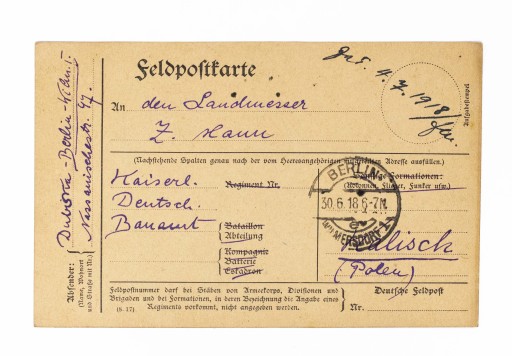 Feldpostkarte
4.7.1918
An den Landmesser
Z. Hann
(Nachstehende Spalten genau nach der vom Heeresangehörigen mitgeteilten Adresse ausfüllen.)
Kaiserl.
Deutsch.
Bauamt
Regiment Nr.
Bataillon
Abteilung
Kompagnie
Batterie
Eskadron
Formationen:
(Kolonnen, Flieger, Funker usw.)
BERLIN-
30.6.18 6-7N.
WILMERSDORF 1
Kalisch
(Polen)
Deutsche Feldpost
Nr.
Feldpostnummer darf bei Stäben von Armeekorps, Divisionen und
Brigaden und bei Formationen, in deren Bezeichnung die Angabe eines
(8. 17) Regiments vorkommt, nicht angegeben werden.
Absender:
(Name, Wohnort
und Straße mit Nr.)
Berlin-
Nassauischestr. 47.